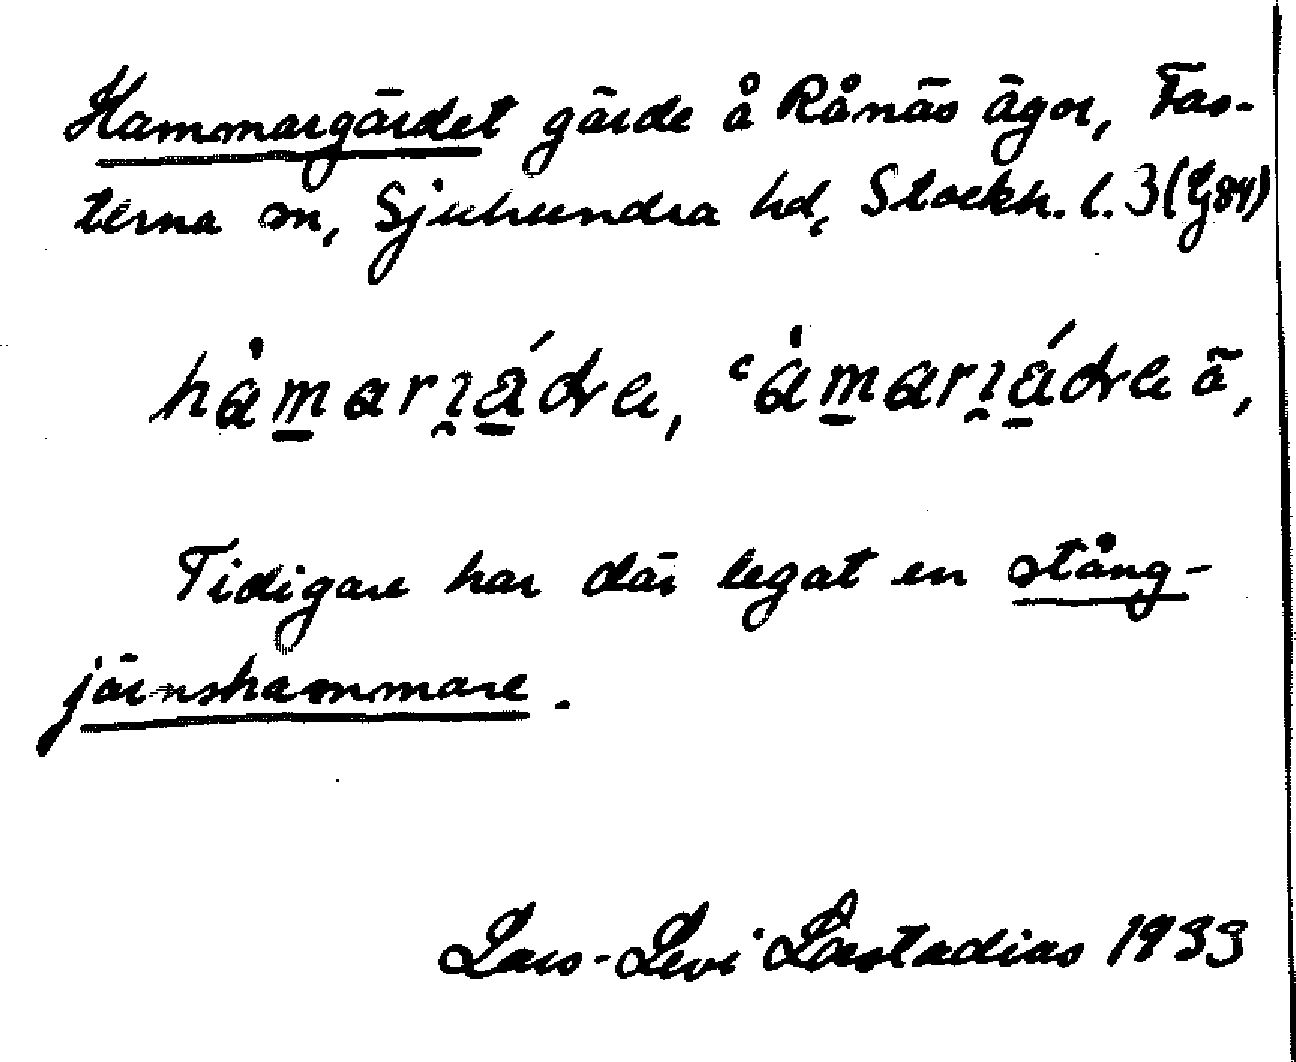 Hammargärdet gärde å Rånäs ägor, Fas-
terna sn, Sjuhundra hd, Stockh. l. 3(Lj84)
hàmarꞁádꞃa, ʿàmarꞁádꞃa ā,
Tidigare har där legat en stång-
järnshammare.
Lars-Levi Læstadius 1933